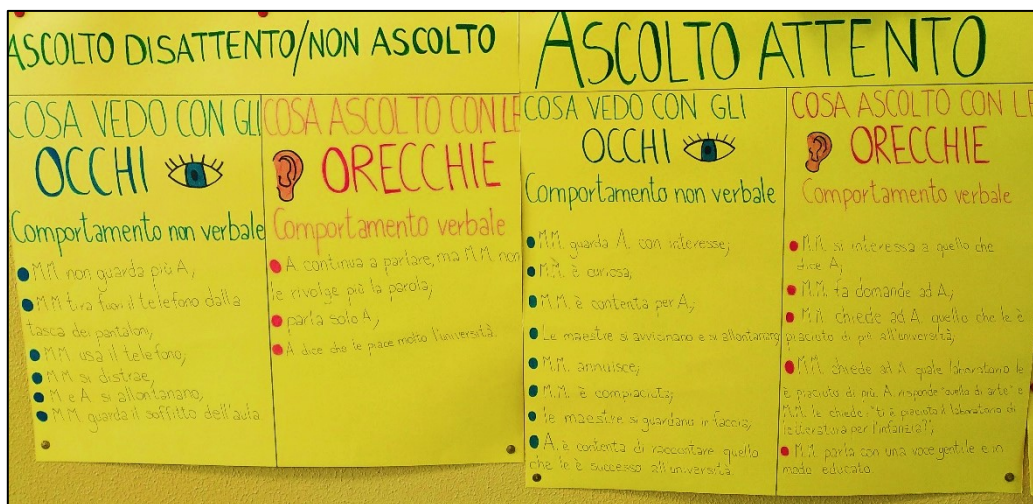 ASCOLTO DISATTENTO/NON ASCOLTO
COSA VEDO CON GLI
OCCHI
Comportamento non verbale
M.M. non guarda più A;
M.M. tira fuori il telefono dalla
tasca dei pantaloni;
M.M. usa il telefono;
M.M. si distrae;
M e A. si allontanano;
M.M. guarda il soffitto dell'aula
COSA ASCOLTO CON LE
ORECCHIE
Comportamento verbale
A continua a parlare, ma M.M. non
le rivolge più la parola;
parla solo A;
A dice che le piace molto l'università.
ASCOLTO ATTENTO
COSA VEDO CON GLI
OCCHI
Comportamento non verbale
M.M. guarda A. con interesse;
M.M. è curiosa;
M.M. è contenta per A;
Le maestre si avvicinano e si allontanano;
M.M. annuisce;
M.M. è compiaciuta;
le maestre si guardano in faccia;
A. è contenta di raccontare quello
che le è successo all'università.
COSA ASCOLTO CON LE
ORECCHIE
Comportamento verbale
M.M. si interessa a quello che
dice A;
M.M. fa domande ad A;
M.M. chiede ad A. quello che le è
piaciuto di più all'università;
M.M. chiede ad A quale laboratorio le
è piaciuto di più. A. risponde "quello di arte" e
M.M. le chiede: "ti è piaciuto il laboratorio di
letteratura per l'infanzia?";
M.M. parla con una voce gentile e in
modo educato.